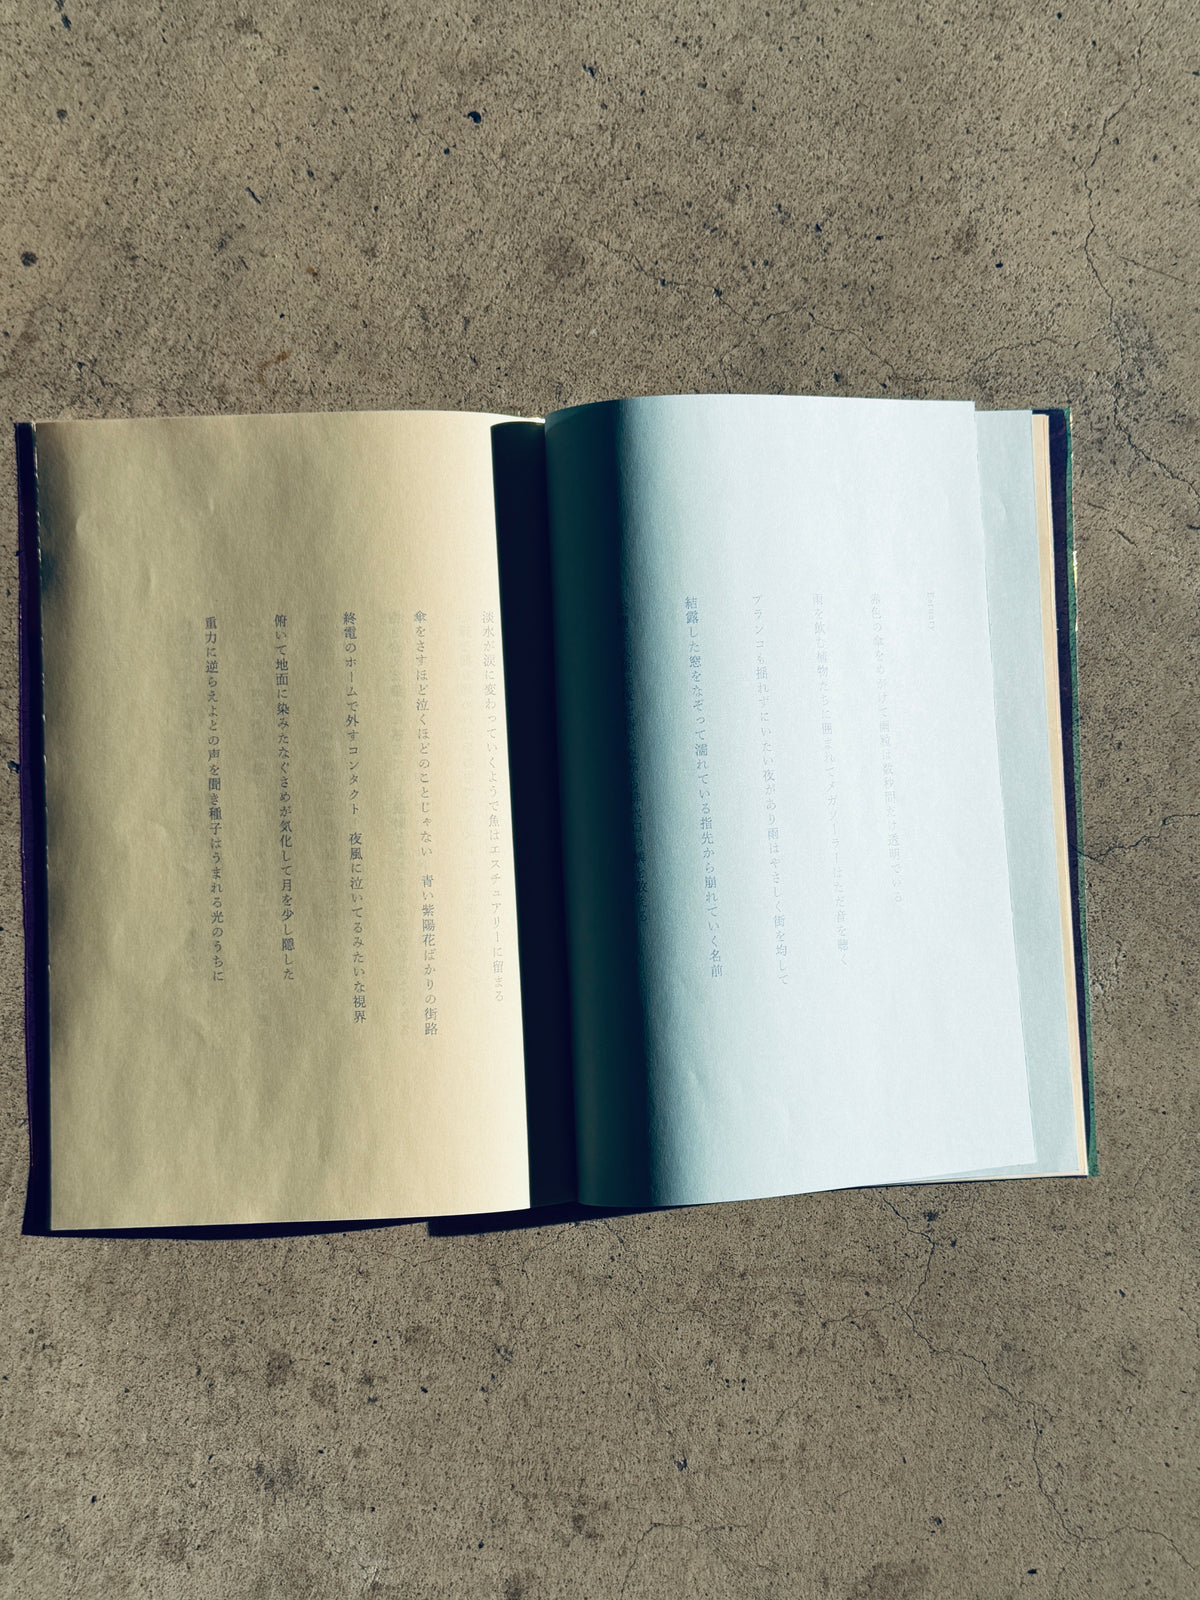 赤色の傘をめがけて雨粒は数秒間だけ透明でいる
雨を飲む植物たちに囲まれてメガソーラーはただ音を聴く
ブランコも揺れずにいたい夜があり雨はやさしく街を均して
結露した窓をなぞって濡れている指先から崩れていく名前
淡水が涙に変わっていくようで魚はエスチュアリーに留まる
傘をさすほど泣くほどのことじゃない　青い紫陽花ばかりの街路
終電のホームで外すコンタクト　夜風に泣いてるみたいな視界
俯いて地面に染みたなぐさめが気化して月を少し隠した
重力に逆らえよとの声を聞き種子はうまれる光のうちに